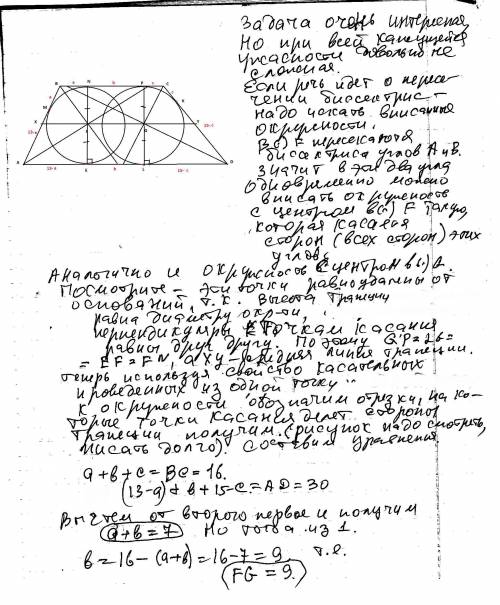 Задача очень интересная,
Но при всей кажущейся
ужасности довольно не
сложная.
Если речь идет о пересе-
чении биссектрис –
надо искать вписанные
окружности.
В (·) F пересекаются
биссектрисы углов А и В.
значит в эти два угла
одновременно можно
вписать окружность
с центром в (·) F такую,
которая касается
сторон (всех сторон) этих
углов.
Аналогично и окружность с центром в (·)
Посмотрите – эти точки равноудалены от
оснований, т.к. высота трапеции
равна диаметру окр-ти,
перпендикуляры к точкам касания
равны друг другу. Поэтому
= EF = FN, а XY – средняя линия трапеции.
теперь используя свойство касательных
проведенных из одной точки
к окружности обозначим отрезки, на ко-
торые точки касания делят стороны
трапеции получим (рисунок надо смотреть,
писать долго). Составим уравнения
a + b + c = BC = 16.
(13-a) + b + 15-c = AD = 30
Вычтем от второго первое и получим
a+b = 7 Но тогда из 1.
b = 16 - (a+b) = 16-7 = 9. т.е.
FG = 9.